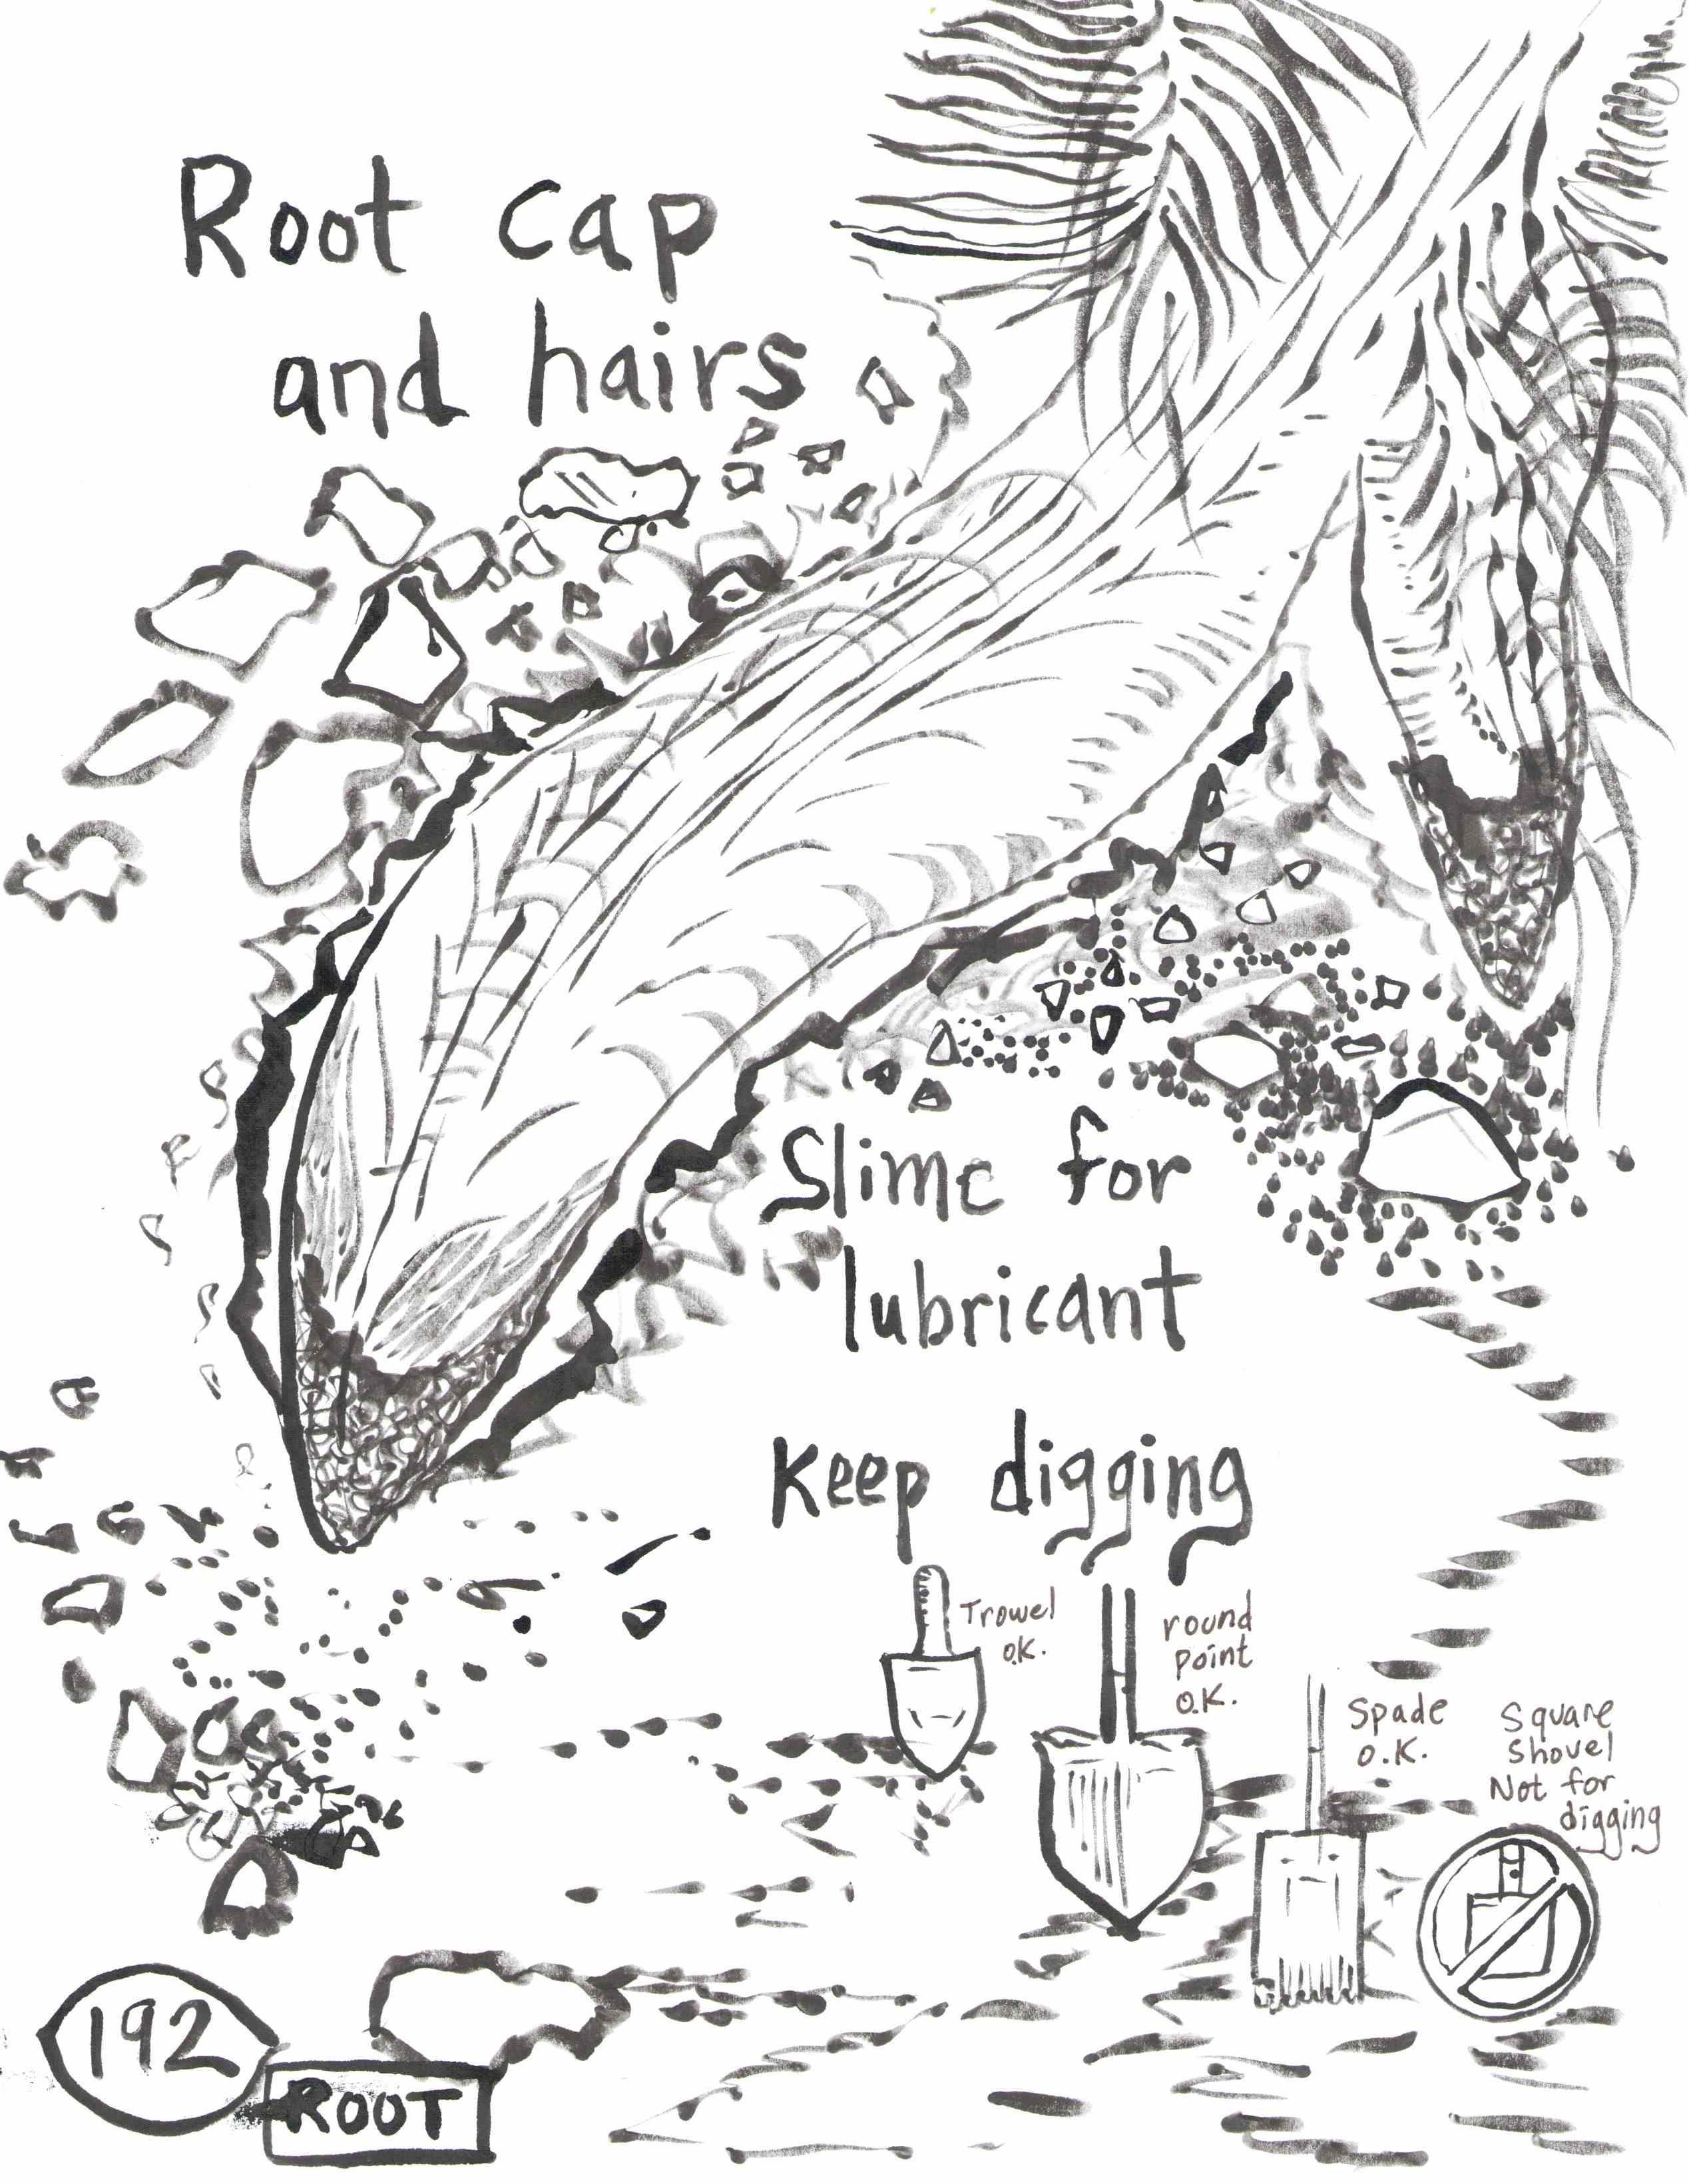 Root cap
and hairs
Slime for
lubricant
Keep digging
Trowel
O.K.
round
point
O.K.
Spade
O.K.
Square
Shovel
Not for
digging
192
ROOT